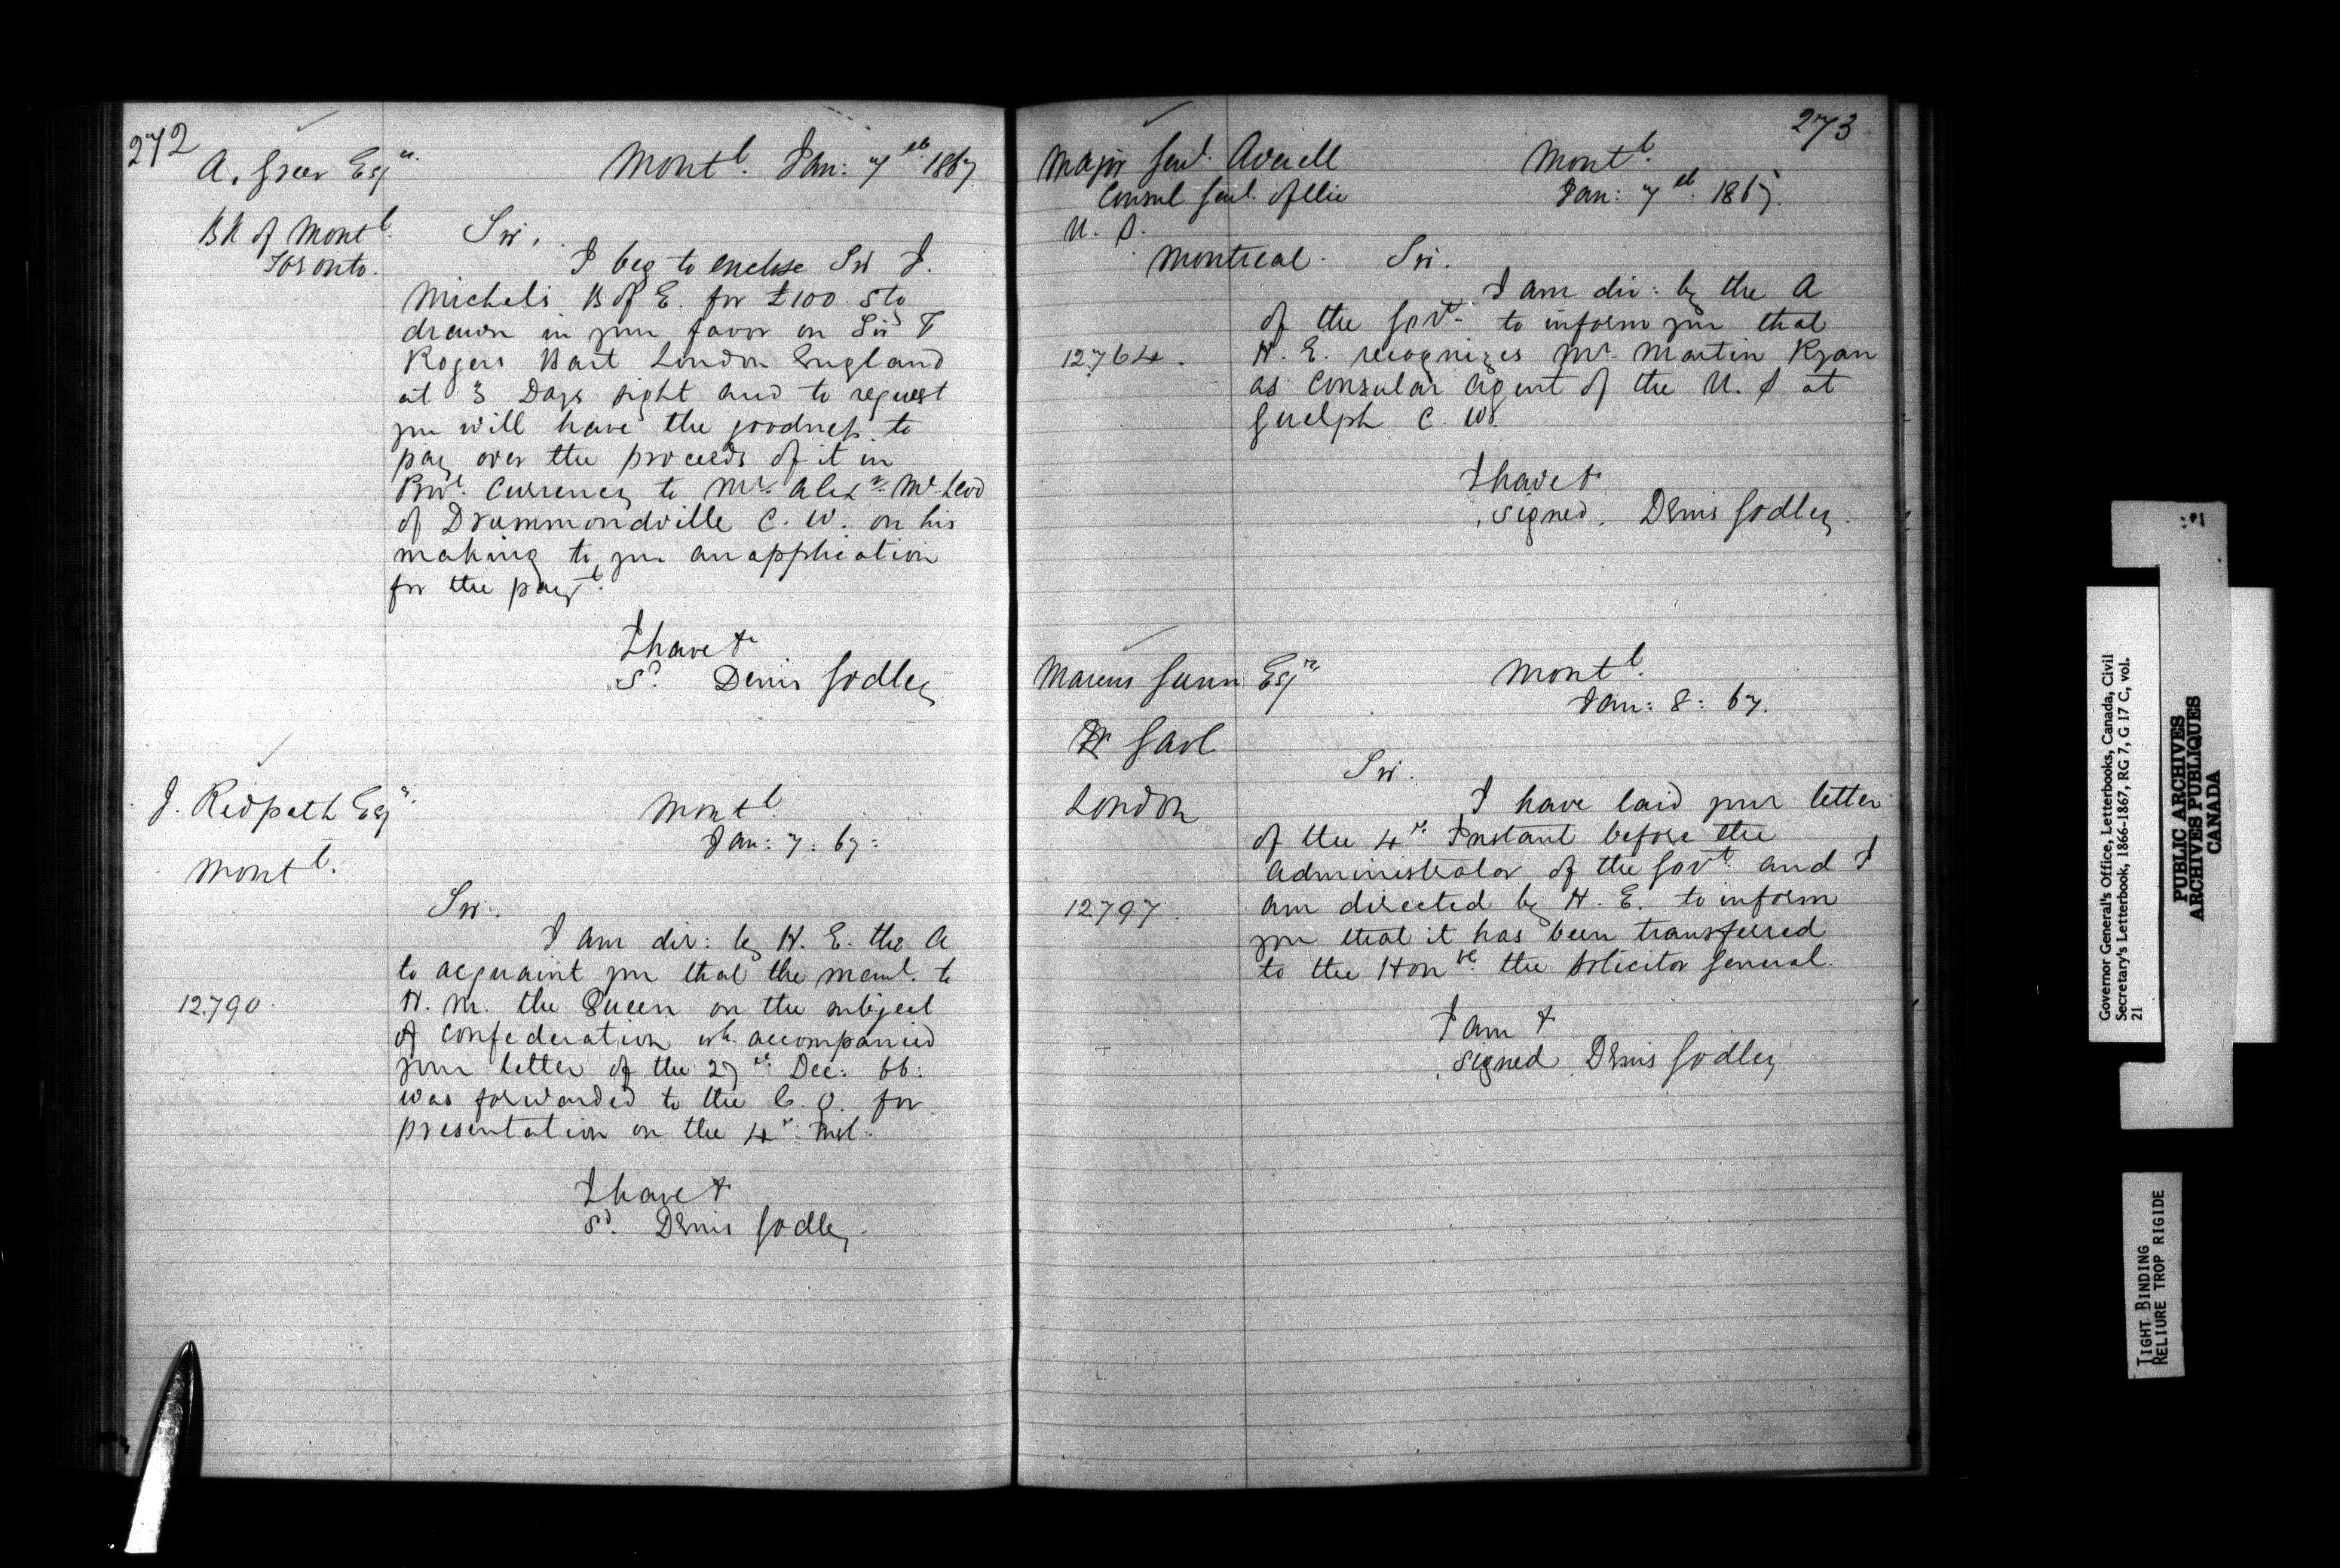 272
A. Greer Esqre.
Bk of Montl.
Toronto.
Montl. Jan: 7th 1867
Sir,
I beg to enclose Sir J.
Michel's B of E. for £100 Stg
drawn in your favor on Sir F
Rogers Bart London England
at 3 Days sight and to request
you will have the goodness to
pay over the proceeds of it in
Provl. Currency to Mr. Alexr. McLeod
of Drummondville C. W. on his
making to you an application
for the payt.
I have &
Sd. Denis Godley
J. Redpath Esqr.
Montl.
Montl.
Jan: 7: 67:
Sir.
12790.
I am dir: by H. E. the A
to acquaint you that the meml. to
H. M. the Queen on the subject
of Confederation wh. accompanied
your letter of the 27th Dec: 66:
was forwarded to the C. O. for
presentation on the 4th Inst:
I have &
Sd. Denis Godley
273
Major Genl. Averell
Consul Genl. of the
U. S.
Montreal.
Montl.
Jan: 7th. 1867.
Sir.
12764.
I am dir: by the A
of the Govt. to inform you that
H. E. recognizes Mr. Martin Ryan
as Consular Agent of the U. S at
Guelph C. W.
I have &
signed. Denis Godley.
Marcus Gunn Esqre
Gaol
London
Montl.
Jan: 8: 67.
Sir.
12797.
I have laid your letter
of the 4th. Instant before the
Administrator of the Govt. and I
am directed by H. E. to inform
you that it has been transferred
to the Honble. the Solicitor General.
I am &
signed Denis Godley
Governor General's Office, Letterbooks, Canada, Civil
Secretary's Letterbook, 1866-1867, RG 7, G 17 C, vol.
21
PUBLIC ARCHIVES
ARCHIVES PUBLIQUES
CANADA
TIGHT BINDING
RELIURE TROP RIGIDE